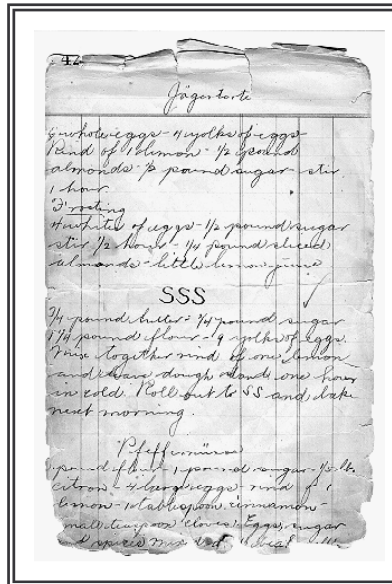 42
Jägertorte
6 whole eggs - 4 yolks of eggs
Rind of 1 lemon - 1/2 pound
almonds - 1/2 pound sugar - stir
1 hour
Frosting
4 whites of eggs - 1/2 pound sugar
stir 1/2 hour - 1/4 pound sliced
almonds - little lemon juice
SSS
3/4 pound butter - 3/4 pound sugar
1 1/4 pound flour - 9 yolks of eggs.
Mix together rind of one lemon
and leave dough stand one hour
in cold. Roll out to SS and bake
next morning.
Pfeffernüsse
pound flour 1 pound sugar - 1/4 lb.
citron - 4 large eggs - rind of 1
lemon - 1 tablespoon cinnamon -
teaspoon cloves. Eggs, sugar
spices